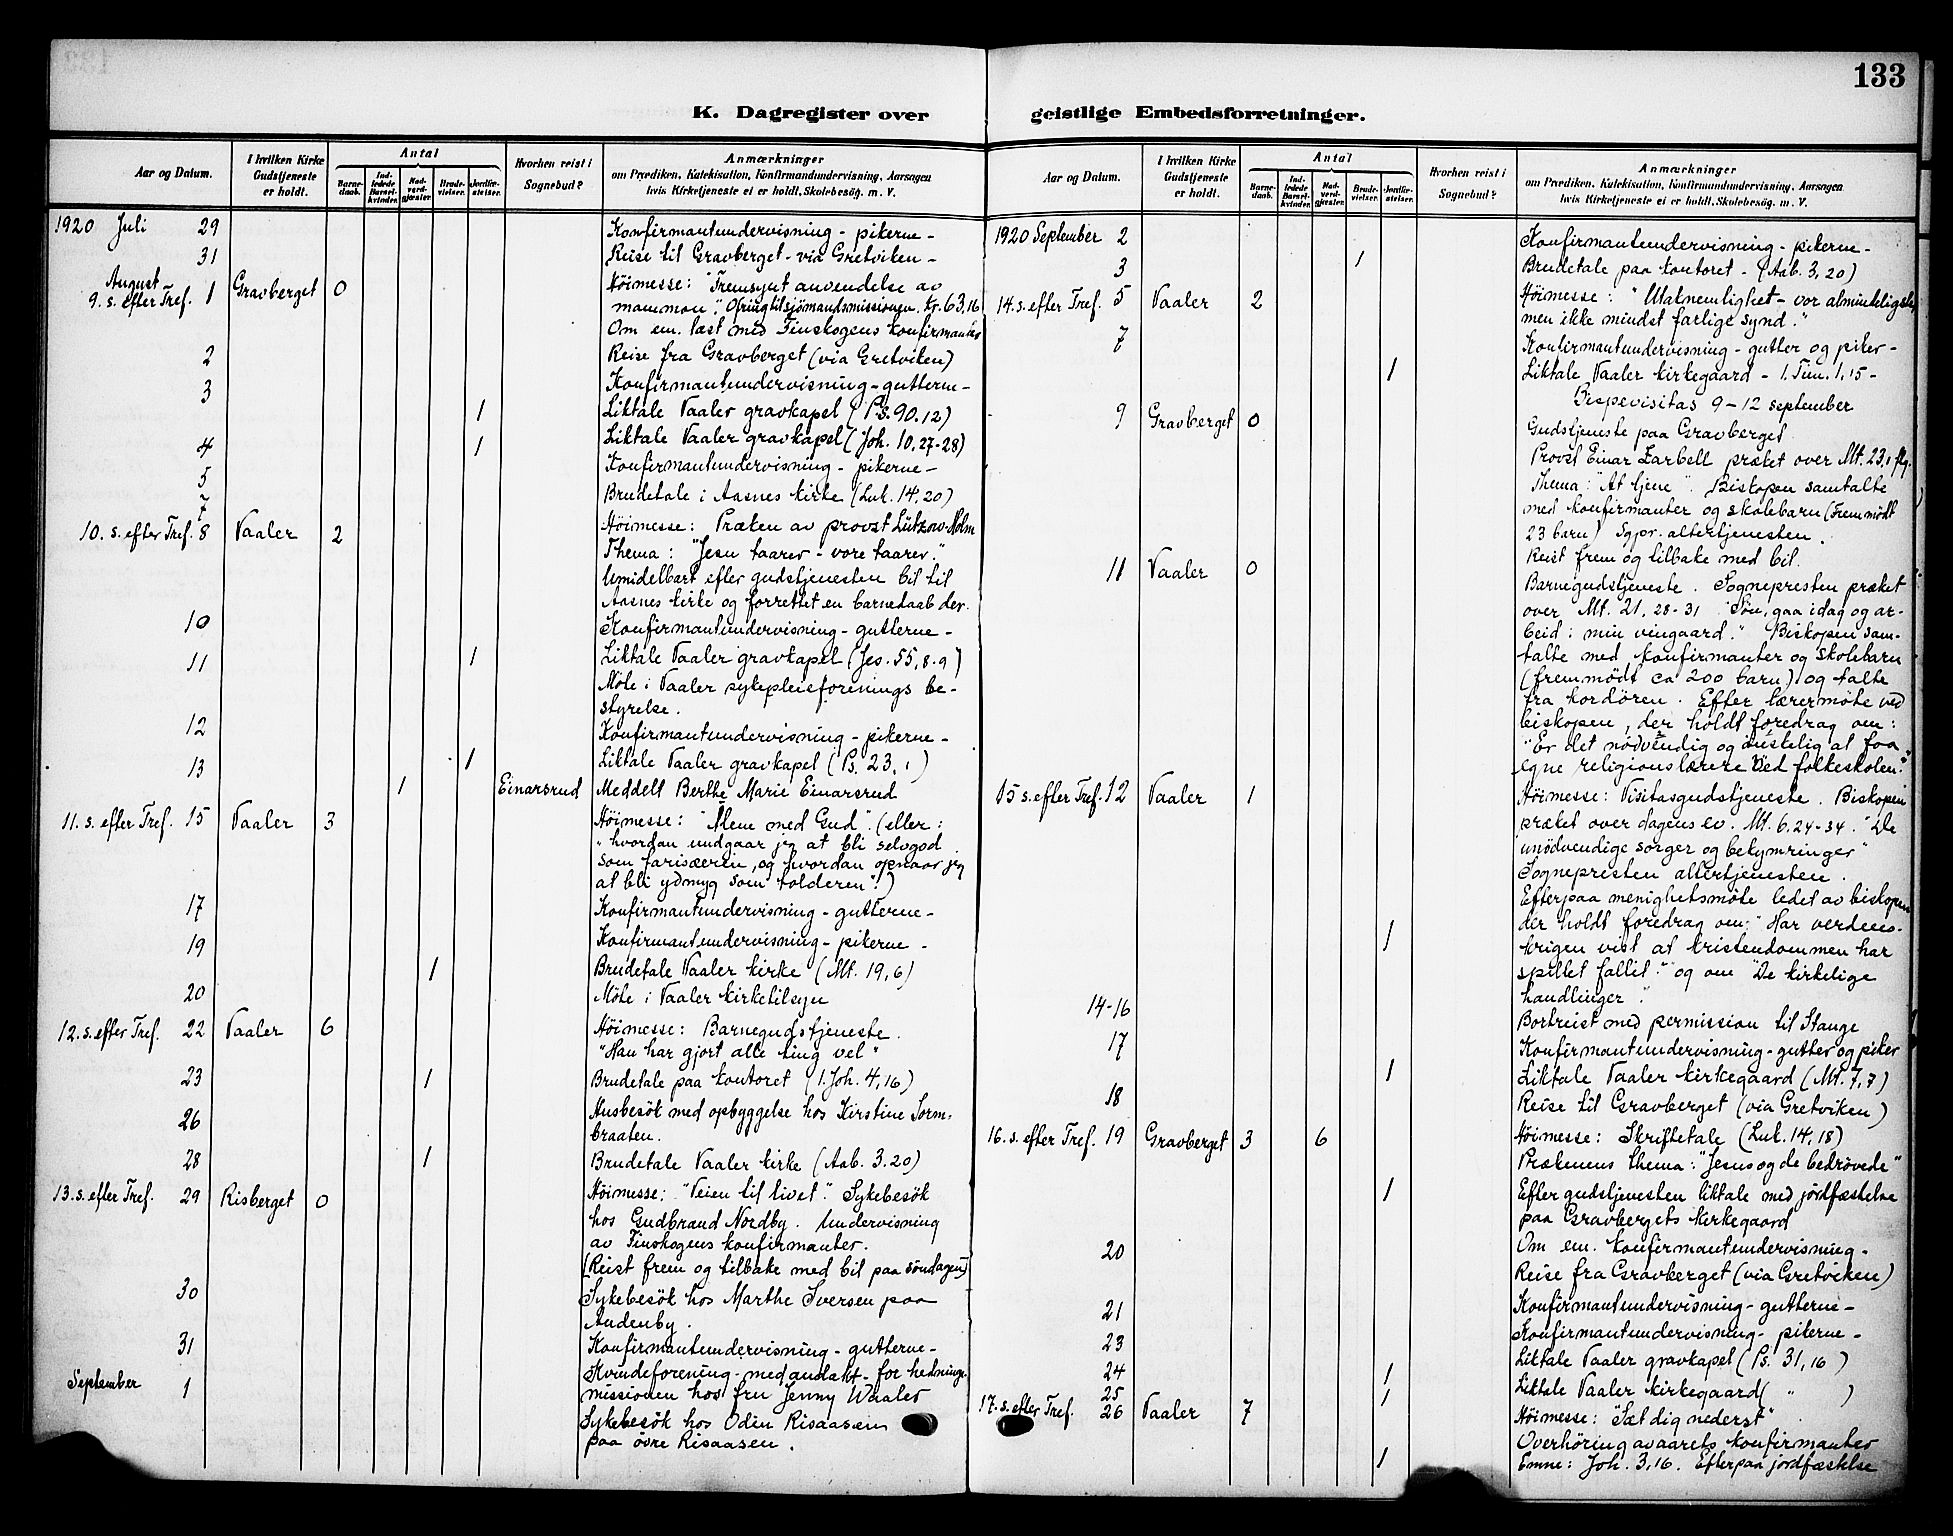 133
K. Dagregister over geistlige Embedsforretninger.
Aar og Datum.
I hvilken Kirke Gudstjeneste er holdt.
Antal
Barne-daab.
Ind-ledede Barsel-kvinder.
Nad-verd-gjæster.
Brude-vielser.
Jordfæ-stelser.
Hvorhen reist i Sognebud?
Anmærkninger
om Prædiken, Katekisation, Konfirmandundervisning, Aarsagen
hvis Kirketjeneste ei er holdt, Skolebesøg. m. V.
1920 Juli 29 Konfirmantundervisning - pikerne -
31 Reise til Gravberget - via Gretviken -
August
9. s. efter Tref. 1 Gravberget 0 Höimesse: "Fremsynt anvendelse av
mammon". Ofring til sjömandsmissionen. Kr. 63,16
Om em. læst med Finskogens konfirmanter
2 Reise fra Gravberget (via Gretviken)
3 Konfirmantundervisning - gutterne -
1 Liktale Vaaler gravkapel (Ps. 90.12)
4 1 Liktale Vaaler gravkapel (Joh. 10,27-28)
5 Konfirmantundervisning - pikerne -
7 Brudetale i Aasnes kirke (Luk. 14,20)
10. s. efter Tref. 8 Vaaler 2 Höimesse: Præken av provst Lützow-Holm
Thema: "Jesu taarer - vore taarer."
Umidelbart efter gudstjenesten bil til
Aasnes kirke og forrettet en barnedaab der.
10 Konfirmantundervisning - gutterne -
11 1 Liktale Vaaler gravkapel (Jes. 55,8-9)
Möte i Vaaler sykepleieforenings be-
styrelse.
12 Konfirmantundervisning - pikerne -
13 1 Liktale Vaaler gravkapel (Ps. 23,1)
1 Einarsrud Meddelt Berthe Marie Einarsrud
11. s. efter Tref. 15 Vaaler 3 Höimesse: "Alene med Gud". (eller:
"hvordan undgaar jeg at bli selvgod
som farisæeren, og hvordan opnaar jeg
at bli ydmyg som tolderen"?)
17 Konfirmantundervisning - gutterne -
19 Konfirmantundervisning - pikerne -
1 Brudetale Vaaler kirke (Mt. 19,6)
20 Möte i Vaaler kirketilsyn
12. s. efter Tref. 22 Vaaler 6 Höimesse: Barnegudstjeneste.
"Han har gjort alle ting vel"
23 1 Brudetale paa kontoret (1. Joh. 4,16)
26 Husbesök med opbyggelse hos Kirstine Sorm-
braaten.
28 1 Brudetale Vaaler kirke (Aab. 3.20)
13. s. efter Tref. 29 Risberget 0 Höimesse: "Veien til livet". Sykebesök
hos Gudbrand Nordby. Undervisning
av Finskogens konfirmanter.
(Reist frem og tilbake med bil paa söndagen)
30 Sykebesök hos Marthe Iversen paa
Audenby.
31 Konfirmantundervisning - gutterne -
September 1 Kvindeforening - med andakt - for hedninge-
missionen hos fru Jenny Waaler
Sykebesök hos Odin Risaasen
paa övre Risaasen.
Aar og Datum.
I hvilken Kirke Gudstjeneste er holdt.
Antal
Barne-daab.
Ind-ledede Barsel-kvinder.
Nad-verd-gjæster.
Brude-vielser.
Jordfæ-stelser.
Hvorhen reist i Sognebud?
Anmærkninger
om Prædiken, Katekisation, Konfirmandundervisning, Aarsagen
hvis Kirketjeneste ei er holdt, Skolebesøg. m. V.
1920 September 2 Konfirmantundervisning - pikerne -
3 1 Brudetale paa kontoret - (Aab. 3,20)
14. s. efter Tref. 5 Vaaler 2 Höimesse: "Utaknemlighet - vor almindeligste,
men ikke mindst farlige synd."
7 Konfirmantundervisning - gutter og piker -
1 Liktale Vaaler kirkegaard - 1. Tim. 1,15 -
Bispevisitas 9-12 september
9 Gravberget 0 Gudstjeneste paa Gravberget
Provst Einar Zarbell præket over Mt. 23,1 flg.
Thema: "At tjene". Biskopen samtalte
med konfirmanter og skolebarn (Fremmödt
23 barn) Sgpr. altertjenesten.
Reist frem og tilbake med bil.
11 Vaaler 0 Barnegudstjeneste. Sognepresten præket
over Mt. 21,28-31 "Sön, gaa idag og ar-
beid i min vingaard." Biskopen sam-
talte med konfirmanter og skolebarn
(fremmödt ca 200 barn) og talte
fra kordören. Efter lærermöte ved
biskopen, der holdt foredrag om:
"Er det nödvendig og önskelig at faa
egne religionslærere ved folkeskolen?"
15 s. efter Tref. 12 Vaaler 1 Höimesse: Visitasgudstjeneste. Biskopen
præket over dagens ev. Mt. 6.24-34. "De
unödvendige sorger og bekymringer"
Sognepresten altertjenesten.
Efterpaa menighetsmöte ledet av biskopen
1 der holdt foredrag om: "Har verdens-
krigen vist at kristendommen har
spillet fallit?" og om "De kirkelige
handlinger".
14-16 Bortreist med permission til Stange
17 Konfirmantundervisning - gutter og piker
1 Liktale Vaaler kirkegaard (Mt. 7,7)
18 Reise til Gravberget (via Gretviken)
16. s. efter Tref. 19 Gravberget 3 6 Höimesse: Skriftetale (Luk. 14,18)
Prækenens thema: "Jesus og de bedrövede"
1 Efter gudstjenesten liktale med jordfæstelse
paa Gravbergets kirkegaard
Om em. konfirmantundervisning -
20 Reise fra Gravberget (via Gretviken)
21 Konfirmantundervisning - gutterne -
23 Konfirmantundervisning - pikerne -
24 1 Liktale Vaaler gravkapel (Ps. 31,16)
25 1 Liktale Vaaler kirkegaard ( " )
17. s. efter Tref. 26 Vaaler 7 Höimesse: "Sæt dig nederst"
Overhöring av aarets konfirmanter
1 Emne: Joh. 3,16. Efterpaa jordfæstelse